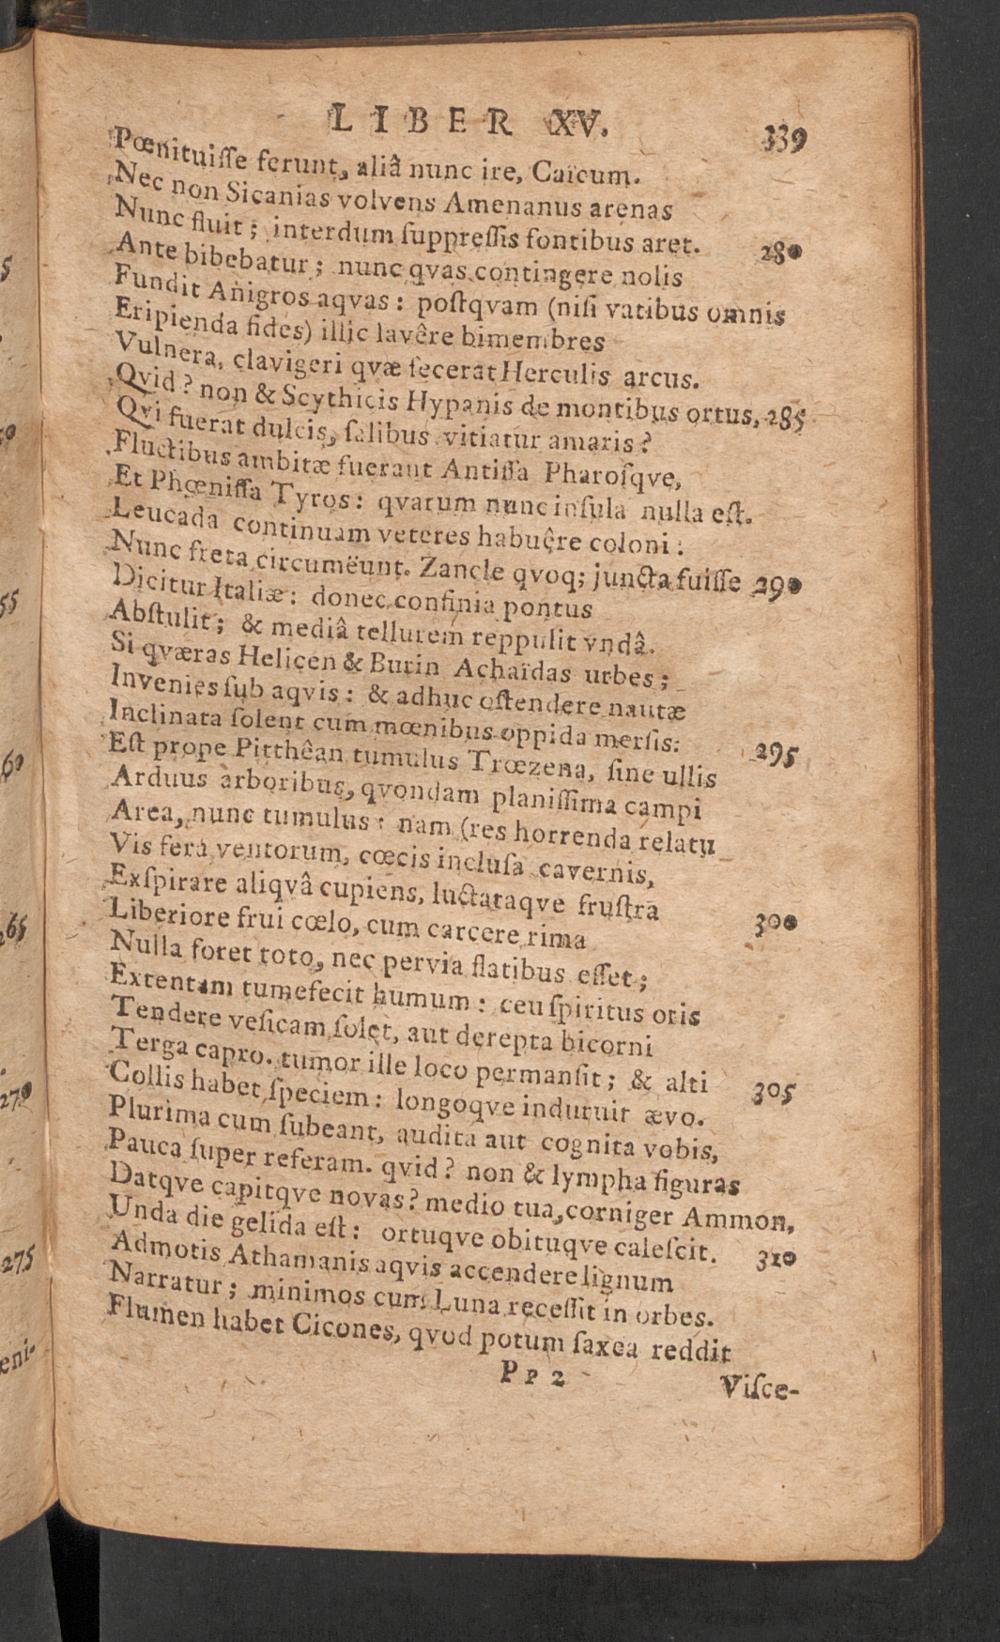 LIBER XV.
339
Pœnituiſſe ferunt, aliâ nunc ire, Caïcum.
Nec non Sicanias volvens Amenanus arenas
Nunc fluit; interdum ſuppreſſis fontibus aret.
Ante bibebatur; nunc qvas contingere nolis 280
Fundit Anigros aqvas: poſtqvam (niſi vatibus omnis
Eripienda fides) illic lavêre bimembres
Vulnera, clavigeri qvæ fecerat Herculis arcus.
Qvid? non & Scythicis Hypanis de montibus ortus, 285
Qvi fuerat dulcis, ſalibus vitiatur amaris?
Fluctibus ambitæ fuerant Antiſſa Pharoſqve,
Et Phœniſſa Tyros: qvarum nunc inſula nulla eſt.
Leucada continuam veteres habuêre coloni:
Nunc freta circumëunt. Zancle qvoq; juncta fuiſſe 290
Dicitur Italiæ: donec confinia pontus
Abſtulit; & mediâ tellurem reppulit vndâ.
Si qværas Helicen & Burin Achaïdas urbes;
Invenies ſub aqvis: & adhuc oſtendere nautæ
Inclinata ſolent cum mœnibus oppida merſis: 295
Eſt prope Pitthêan tumulus Trœzena, ſine ullis
Arduus arboribus, qvondam planiſſima campi
Area, nunc tumulus: nam (res horrenda relatu
Vis fera ventorum, cœcis incluſa cavernis,
Exſpirare aliqvâ cupiens, luctataqve fruſtra 300
Liberiore frui cœlo, cum carcere rima
Nulla foret toto, nec pervia flatibus eſſet;
Extentam tumefecit humum: ceu ſpiritus oris
Tendere veſicam ſolet, aut derepta bicorni
Terga capro. tumor ille loco permanſit; & alti 305
Collis habet ſpeciem: longoqve induruit ævo.
Plurima cum ſubeant, audita aut cognita vobis,
Pauca ſuper referam. qvid? non & lympha figuras
Datqve capitqve novas? medio tua, corniger Ammon,
Unda die gelida eſt: ortuqve obituqve caleſcit. 310
Admotis Athamanis aqvis accendere lignum
Narratur; minimos cum Luna receſſit in orbes.
Flumen habet Cicones, qvod potum ſaxea reddit
Pp 2
Viſce-
5
55
60
265
270
275
eni-